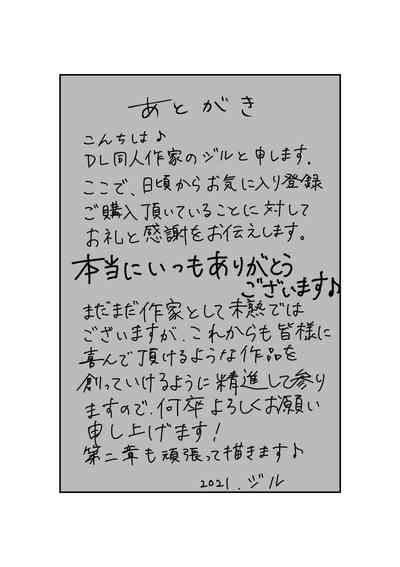 あとがき
こんちは♪
DL同人作家のジルと申します.
ここで、日頃からお気に入り登録
ご購入頂いていることに対して
お礼と感謝をお伝えします。
本当にいつもありがとう
ございます♪
まだまだ作家として未熟では
ございますが、これからも皆様に
喜んで頂けるような作品を
創っていけるように精進して参り
ますので、何卒よろしくお願い
申し上げます!
第二章も頑張って描きます♪
2021.ジル